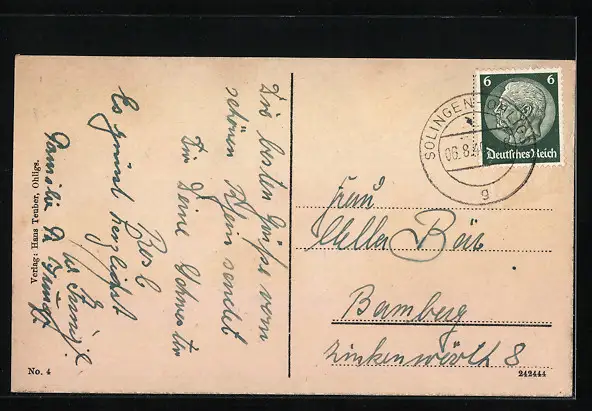 Die besten Grüße vom
schönen Rhein sendet
Dir Deine Schwester
Resl
Es grüsst herzlichst
Familie
Verlag: Hans Teuber, Ohligs.
No. 4
6 6
Deutsches Reich
SOLINGEN-OHLIGS
06.8.40
g
Frau
Bär
Bamberg
Zinkenwörth 8
242444